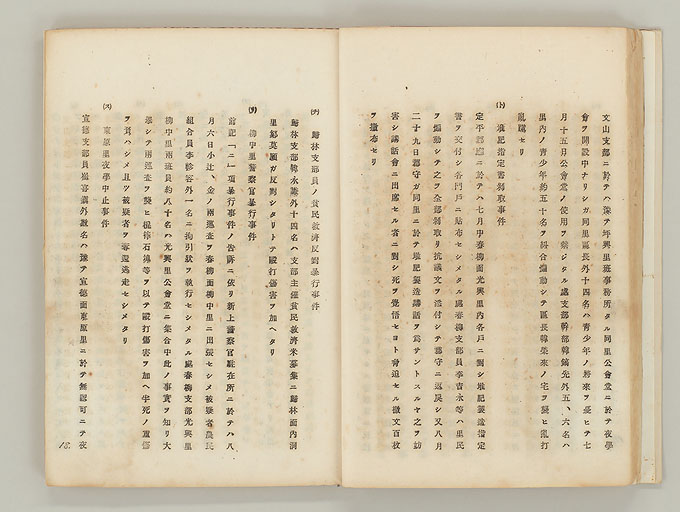 文山支部ニ於テハ豫テ坪興里班事務所タル同里公會堂ニ於テ夜學
會ヲ開設中ナリシガ同里區長外十四名ハ青少年ノ將來ヲ憂ヒテ七
月十五日公會堂ノ使用ヲ禁ジタル處支部幹部韓鎬先外五、六名ハ
里內ノ青少年約五十名ヲ糾合煽動シテ區長韓榮來ノ宅ヲ襲ヒ亂打
亂罵セリ
(ト) 堆肥指定書剝取事件
定平郡廳ニ於テハ七月中春柳面光興里內各戶ニ對シ堆肥製造指定
書ヲ交付シ各門戶ニ貼布セシメタル處春柳支部員李吉永等ハ里民
ヲ煽動シテ之ヲ全部剝取リ抗議文ヲ添付シテ郡守ニ返戾シ又八月
二十九日郡守ガ同里ニ於テ堆肥製造講話ヲ爲サントスルヤ之ヲ妨
害シ講話會ニ出席セル者ニ對シ死ヲ覺悟セヨト脅迫セル檄文百枚
ヲ撒布セリ
(チ) 歸林支部員ノ貧民救濟反對暴行事件
歸林支部韓永 外十四名ハ支部主催貧民救濟米募集ニ歸林面內洞
里鄭莫願ガ反對シタリトテ毆打傷害ヲ加ヘタリ
(リ) 柳中里警察官暴行事件
前記「ニ」項暴行事件ノ告訴ニ依リ新上警察官駐在所ニ於テハ八
月六日小辻、金ノ兩巡査ヲ春柳面柳中里ニ出張セシメ被疑者農民
組合員李 容外一名ニ拘引狀ヲ執行セシメタル處春柳支部光興里
柳中里兩班員約八十名ハ光興里公會堂ニ集合中此ノ事實ヲ知リ大
擧シテ兩巡査ヲ襲ヒ棍棒石塊等ヲ以テ毆打傷害ヲ加ヘ半死ノ重傷
ヲ負ハシメ且ツ被疑者ヲ奪還逃走セシメタリ
(ヌ) 東原里夜學中止事件
宣德支部員 外數名ハ豫テ宣德面東原里ニ於テ無認可ニテ夜